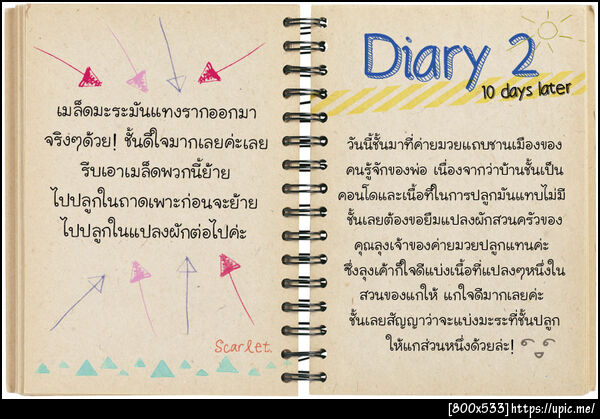 เมล็ดมะระมันแทงรากออกมา
จริงๆด้วย! ชั้นดีใจมากเลยค่ะเลย
รีบเอาเมล็ดพวกนี้ย้าย
ไปปลูกในถาดเพาะก่อนจะย้าย
ไปปลูกในแปลงผักต่อไปค่ะ
Scarlet.
Diary 2
10 days later
วันนี้ชั้นมาที่ค่ายมวยแถบชานเมืองของ
คนรู้จักของพ่อ เนื่องจากว่าบ้านชั้นเป็น
คอนโดและเนื้อที่ในการปลูกมันแทบไม่มี
ชั้นเลยต้องขอยืมแปลงผักสวนครัวของ
คุณลุงเจ้าของค่ายมวยปลูกแทนค่ะ
ซึ่งลุงเค้าก็ใจดีแบ่งเนื้อที่แปลงๆหนึ่งใน
สวนของแกให้ แกใจดีมากเลยค่ะ
ชั้นเลยสัญญาว่าจะแบ่งมะระที่ชั้นปลูก
ให้แกส่วนหนึ่งด้วยล่ะ!
[800x533] https://upic.me/